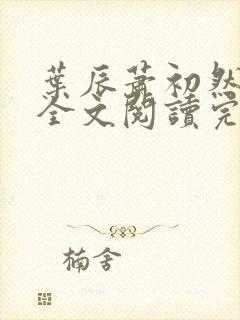 葉辰蕭初然
全文閱讀完
楠舍